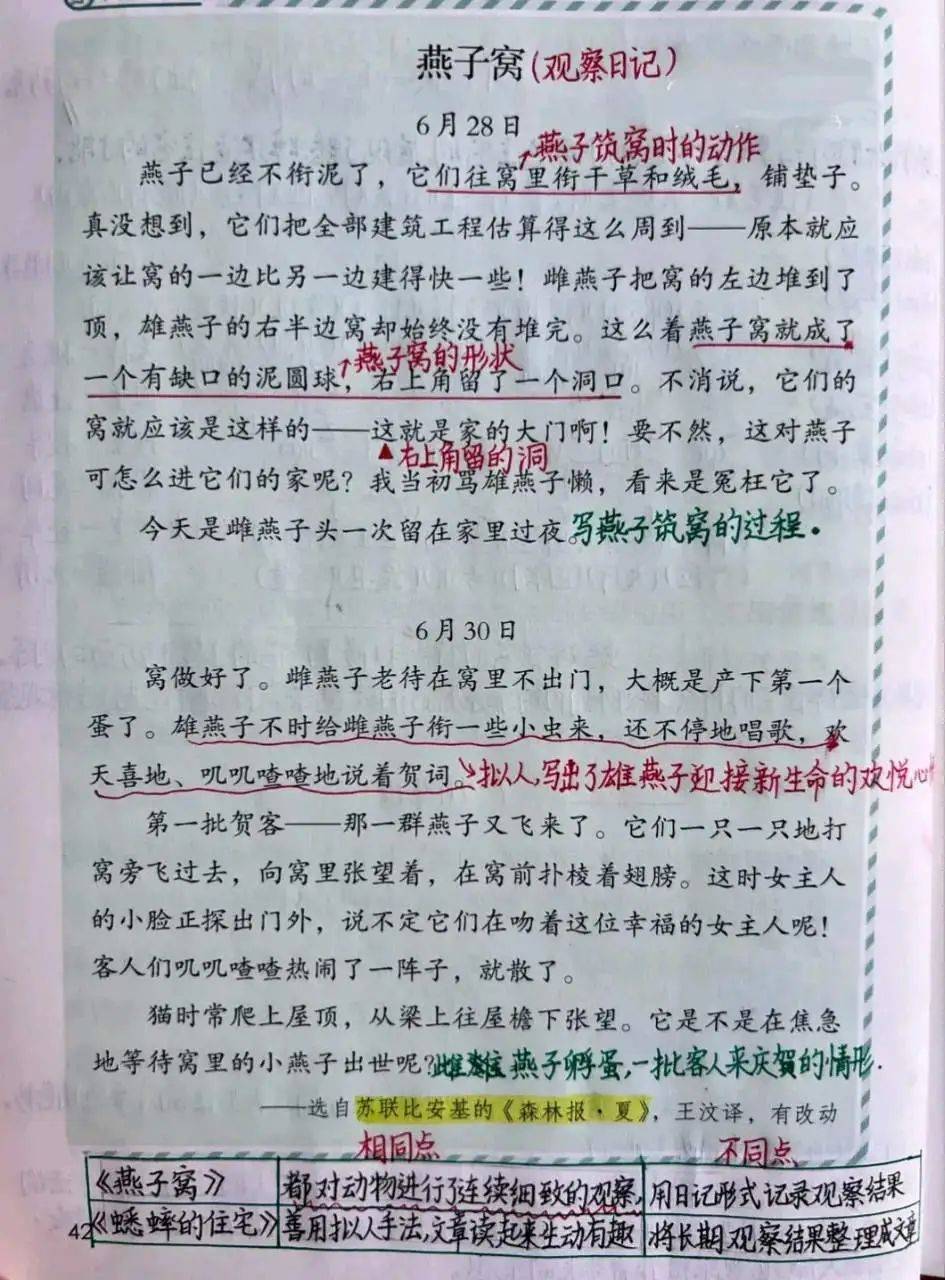 燕子窝(观察日记)
6月28日
燕子筑窝时的动作
燕子已经不衔泥了，它们往窝里衔干草和绒毛，铺垫子。
真没想到，它们把全部建筑工程估算得这么周到——原本就应
该让窝的一边比另一边建得快一些！雌燕子把窝的左边堆到了
顶，雄燕子的右半边窝却始终没有堆完。这么着燕子窝就成了
燕子窝的形状
一个有缺口的泥圆球，右上角留了一个洞口。不消说，它们的
窝就应该是这样的——这就是家的大门啊！要不然，这对燕子
右上角留的洞
可怎么进它们的家呢？我当初骂雄燕子懒，看来是冤枉它了。
今天是雌燕子头一次留在家里过夜。写燕子筑窝的过程.
6月30日
窝做好了。雌燕子老待在窝里不出门，大概是产下第一个
蛋了。雄燕子不时给雌燕子衔一些小虫来，还不停地唱歌，欢
天喜地、叽叽喳喳地说着贺词。拟人,写出了雄燕子迎接新生命的欢悦心
第一批贺客——那一群燕子又飞来了。它们一只一只地打
窝旁飞过去，向窝里张望着，在窝前扑棱着翅膀。这时女主人
的小脸正探出门外，说不定它们在吻着这位幸福的女主人呢！
客人们叽叽喳喳热闹了一阵子，就散了。
猫时常爬上屋顶，从梁上往屋檐下张望。它是不是在焦急
地等待窝里的小燕子出世呢？雌燕子孵蛋,一批客人来庆贺的情形.
——选自苏联比安基的《森林报·夏》，王汶译，有改动
相同点 不同点
《燕子窝》 都对动物进行了连续细致的观察, 用日记形式记录观察结果
42《蟋蟀的住宅》 善用拟人手法,文章读起来生动有趣 将长期观察结果整理成文章